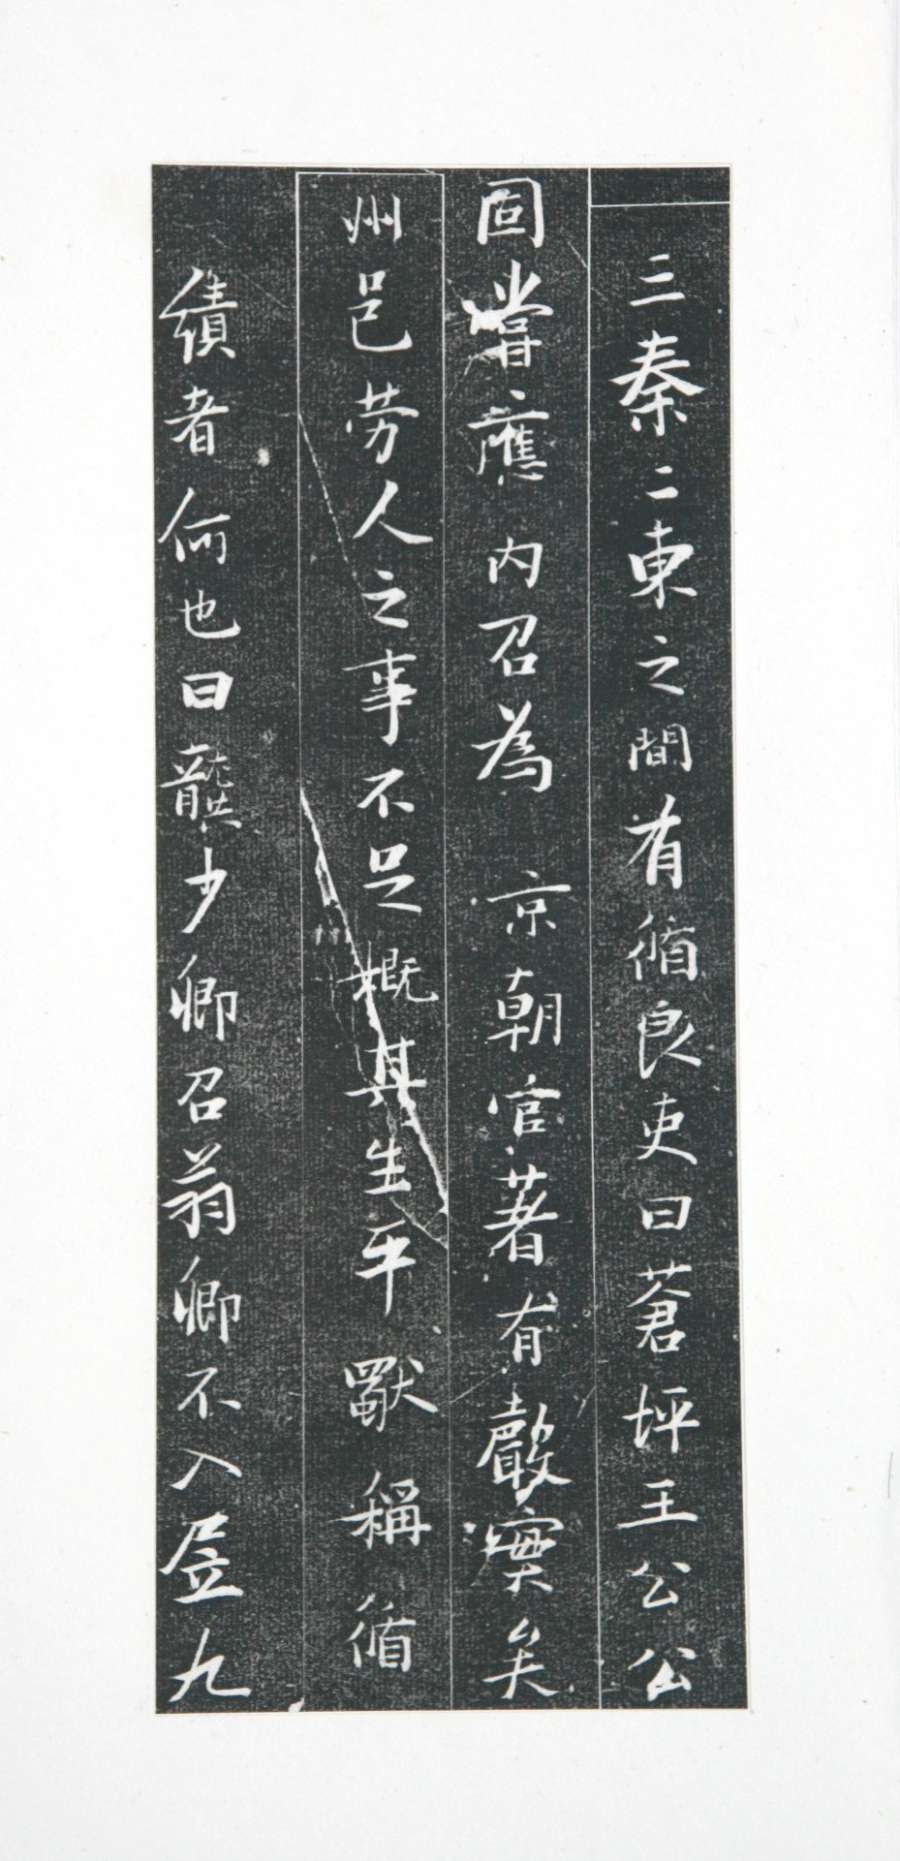 三秦二東之間有循良吏曰蒼坪王公公
固嘗應內召為京朝官著有聲實矣
州邑劳人之事不足概其生平獸稱循
績者何也曰龔少卿召翁卿不入九